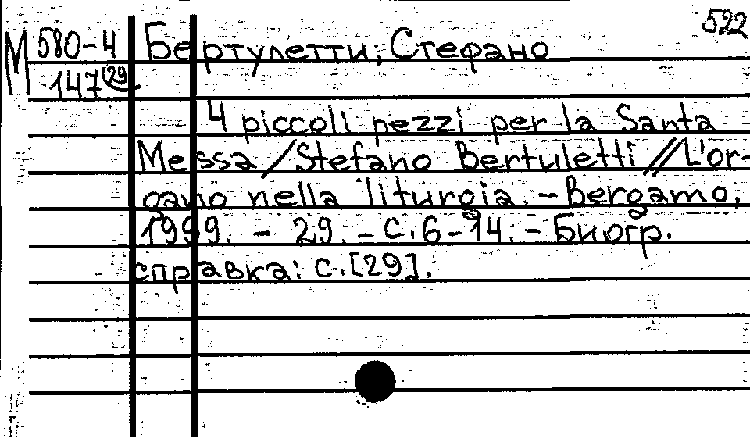 522
М 580-4 Бертулетти, Стефано
147(29)
4 piccoli pezzi per la Santa
Messa / Stefano Bertuletti // L'or-
gano nella liturgia. - Bergamo,
1999. - 29. - С. 6-14. - Биогр.
справка: с. [29].